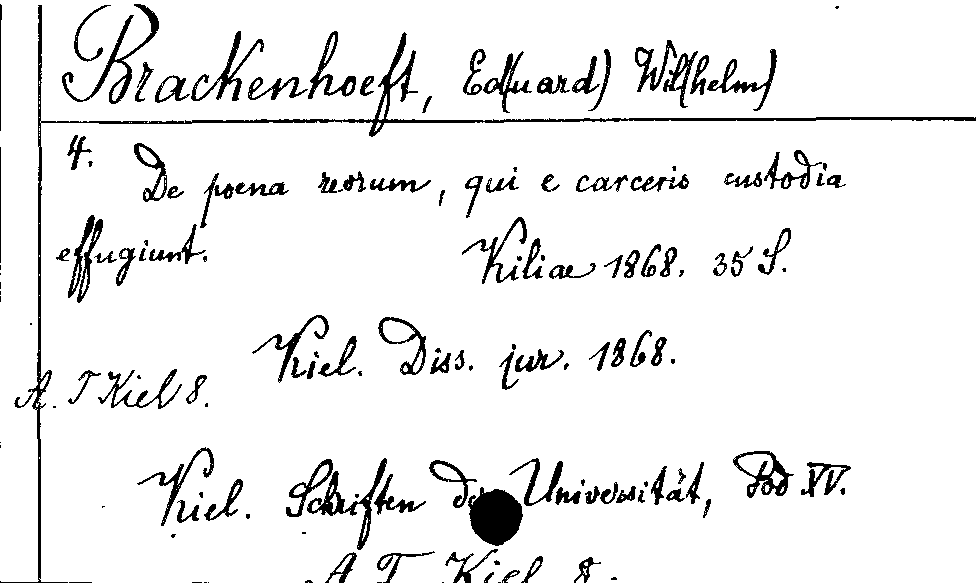 Brackenhoeft, Ed(uard) Wil(helm)
4. De poena reorum, qui e carceris custodia
effugiunt. Kiliae 1868. 35 S.
Kiel. Diss. jur. 1868.
A. T Kiel 8.
Kiel. Schriften der Universität, Bd XV.
A T Kiel 8.